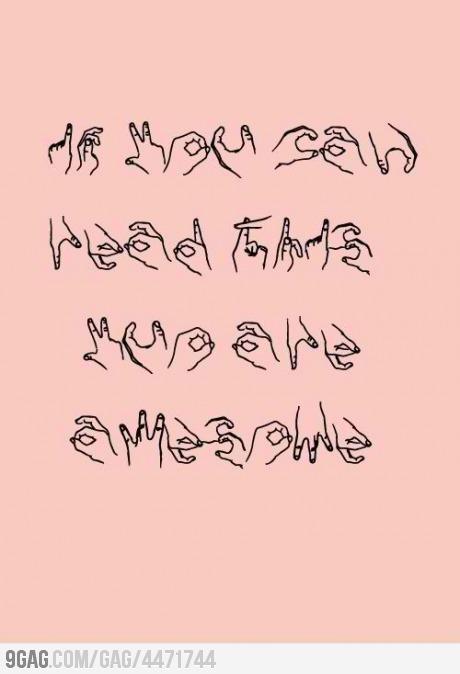 if you can
read this
yuo are
awesome
9GAG.COM/GAG/4471744